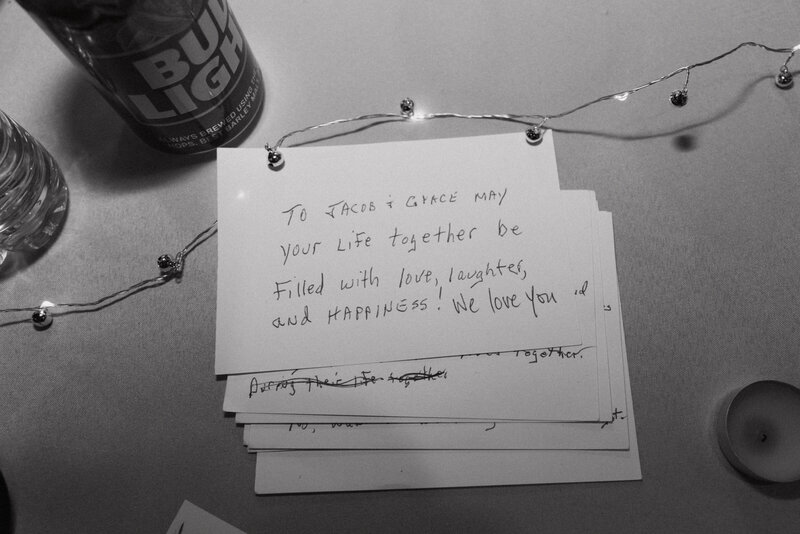 BUD
LIGHT
ALWAYS BREWED USING
HOPS, BEST BARLEY
TO JACOB & GRACE MAY
your Life together be
Filled with love, laughter,
and HAPPINESS! We love you
together.
During their life together
No,